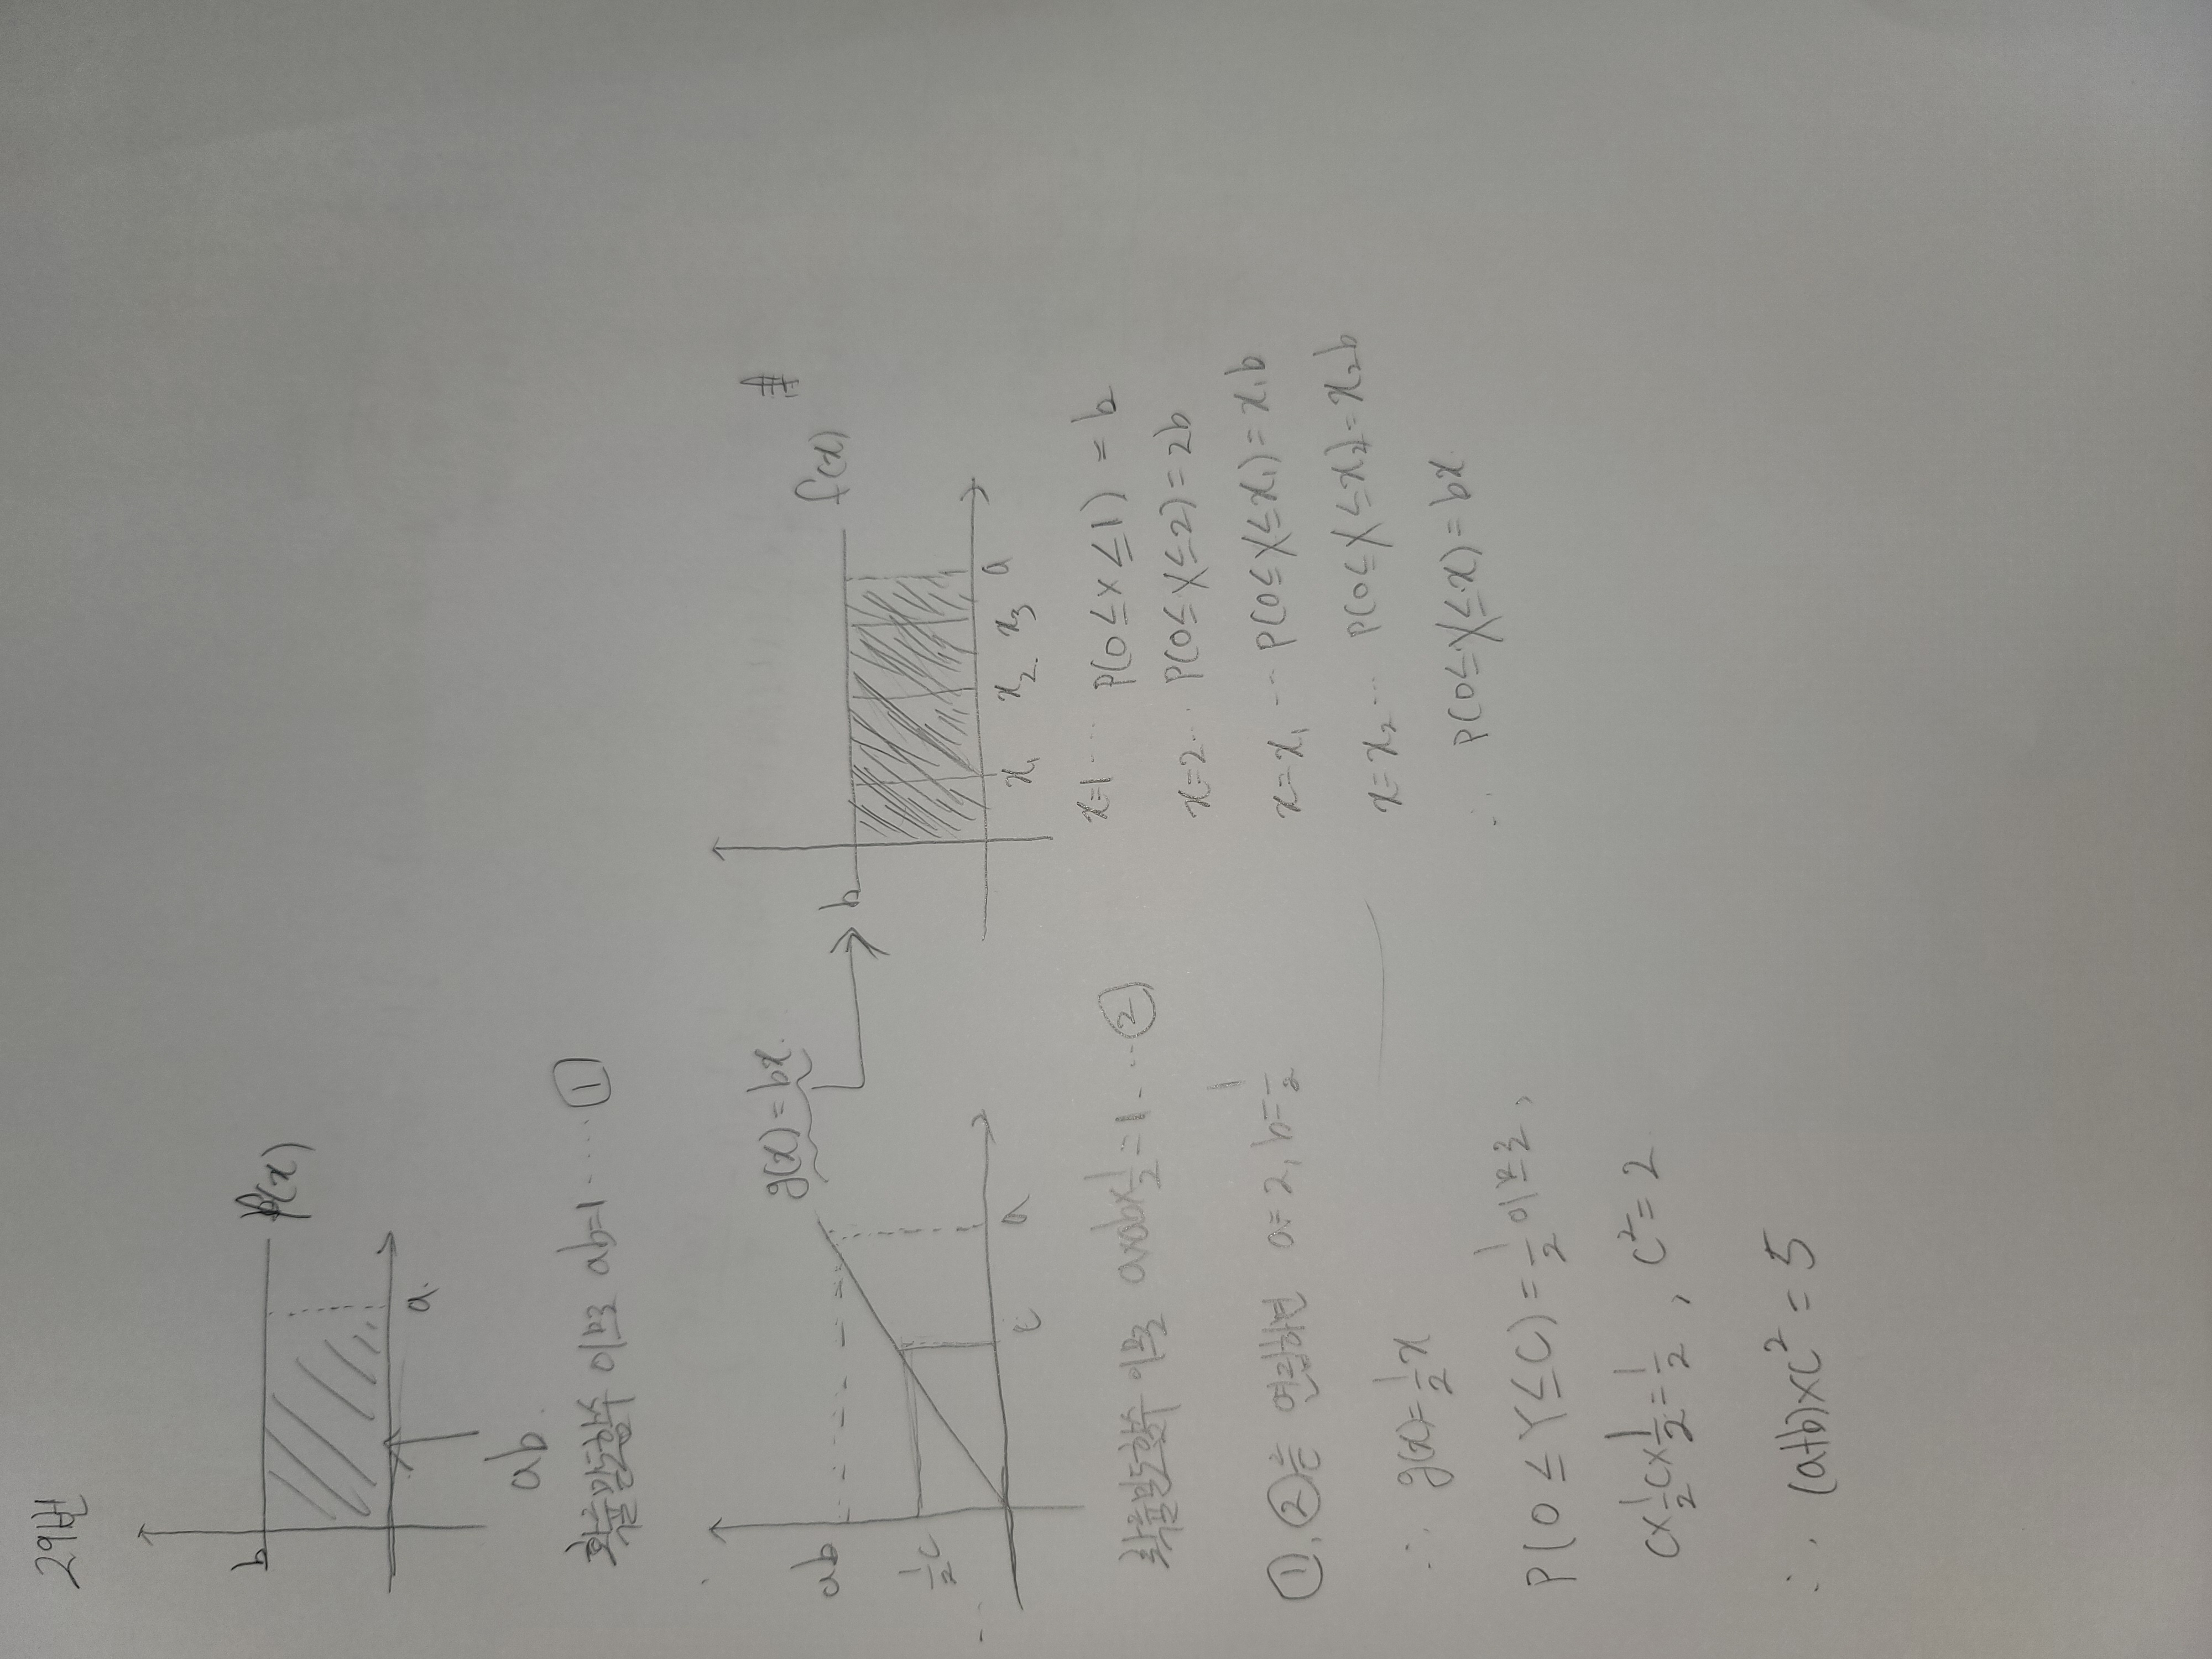 29번
b
f(x)
a.
ab.
확률밀도함수 이므로 ab=1 ····· ①
g(x)=bx.
ab
½c
c
a
b
f(x)
x₁ x₂ x₃ a
확률밀도함수 이므로 a×ab×½=1 ···· ②
①, ②를 연립하면 a=2, b=½
∴ g(x)=½x
P(0≤Y≤C)=½이므로,
C×½C×½=½, C²=2
∴ (a+b)×C²=5
x=1 ··· P(0≤X≤1)=b
x=2 ··· P(0≤X≤2)=2b
x=x₁ ··· P(0≤X≤x₁)=x₁b
x=x₂ ··· P(0≤X≤x₂)=x₂b
∴ P(0≤X≤x)=bx.